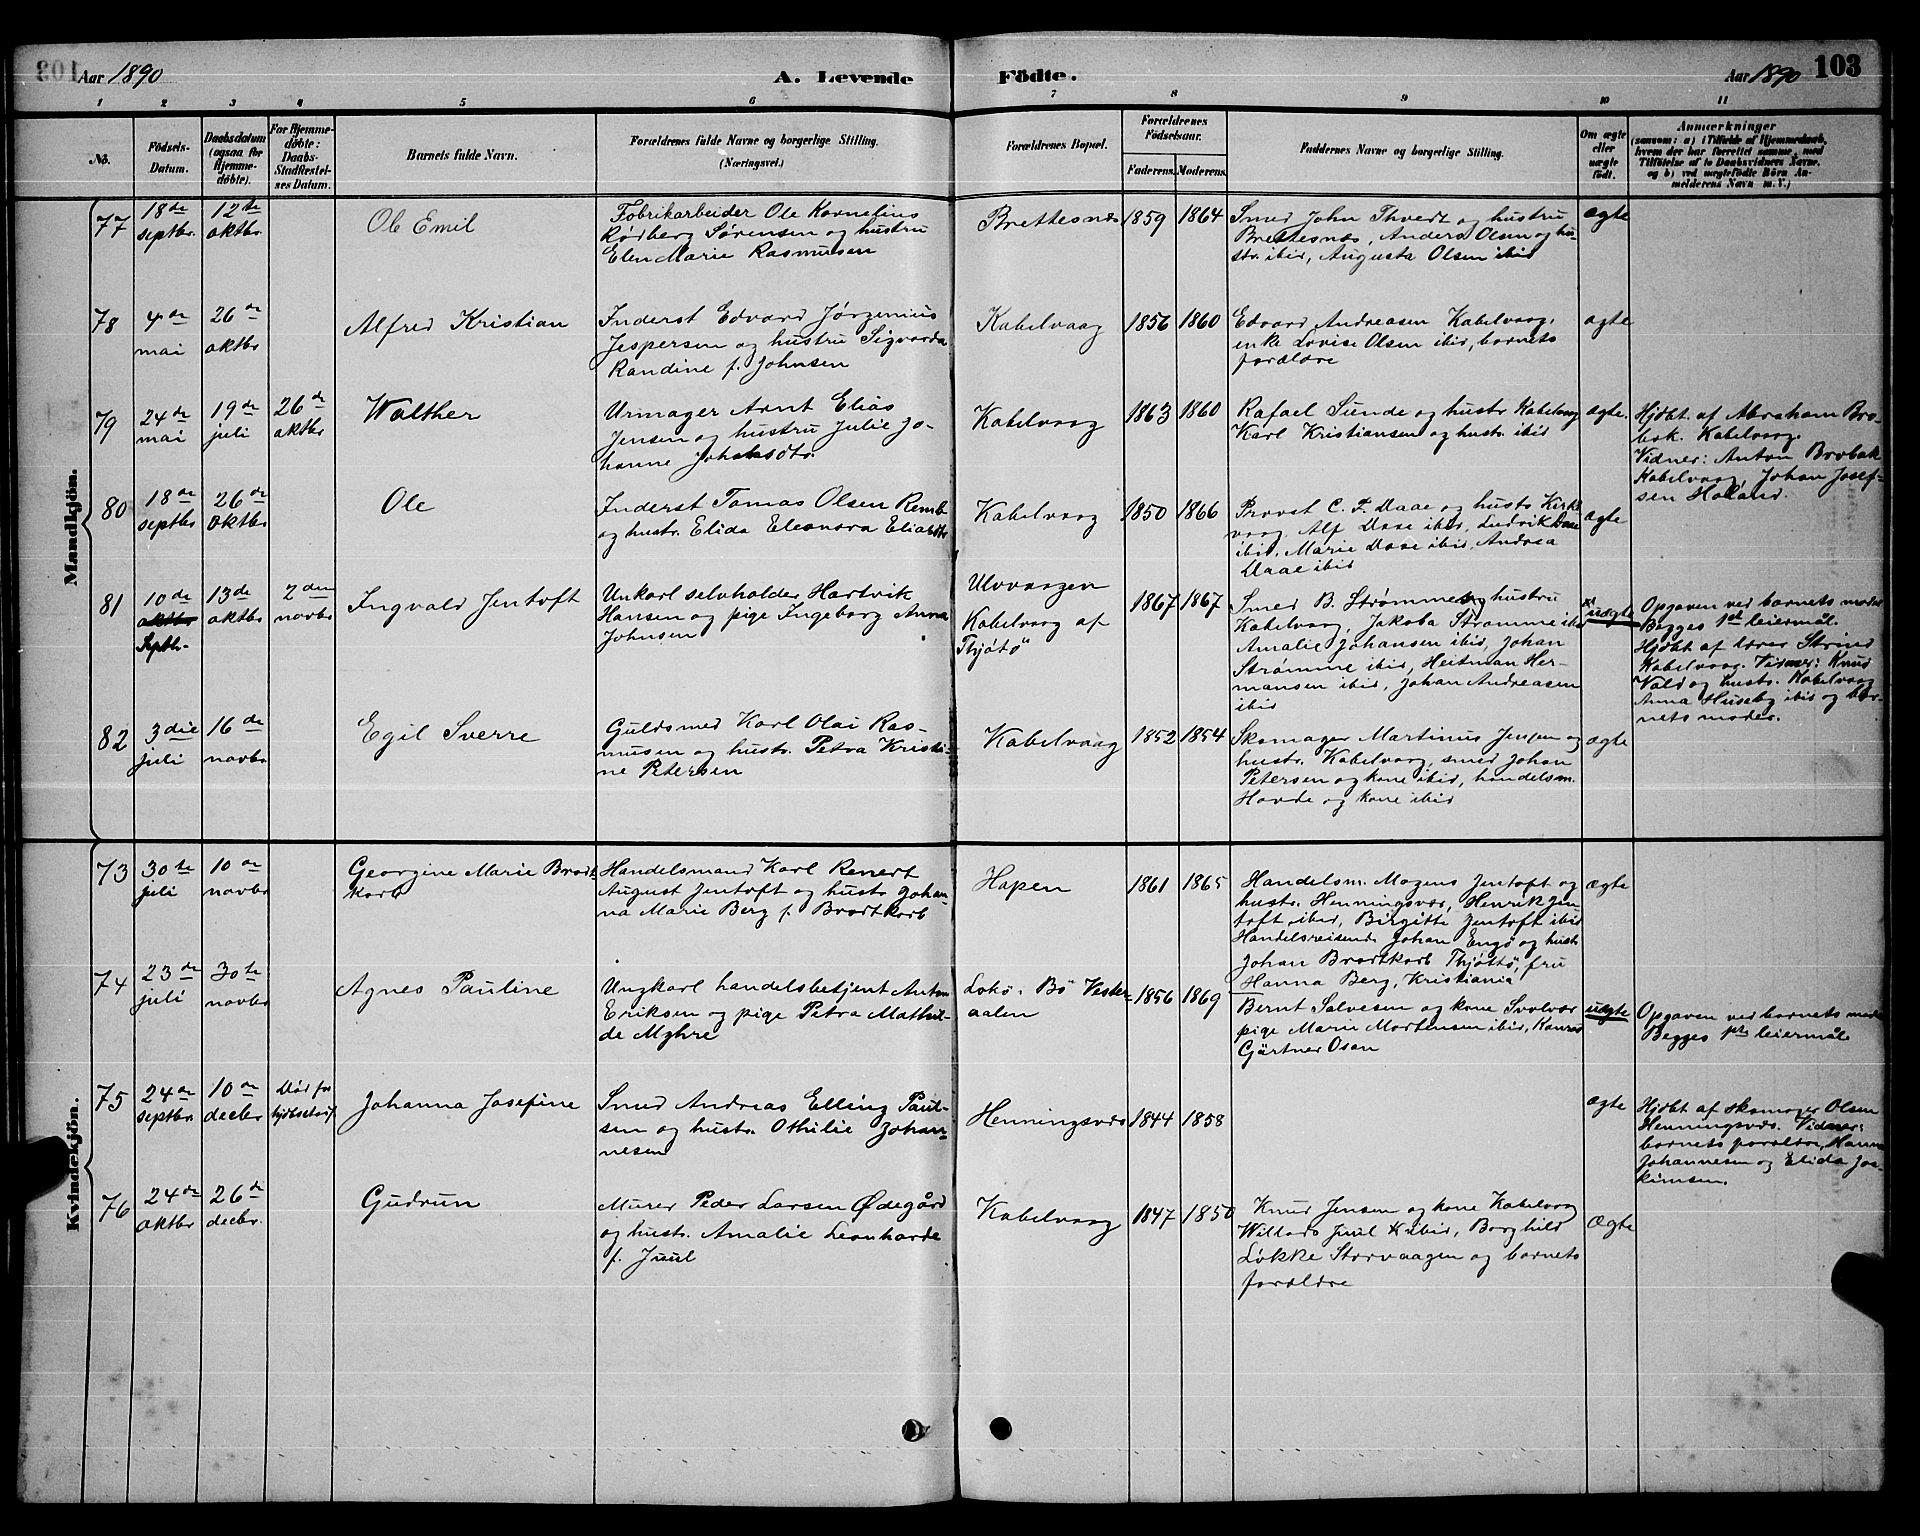 Aar 1890
A. Levende Födte.
Aar 1890
103
1 2 3 4 5 6 7 8 9 10 11
No.
Födsels-
Datum.
Daabsdatum
(ogsaa for
Hjemme-
döbte).
For Hjemme-
döbte:
Daabs-
Stadfæstel-
ses Datum.
Barnets fulde Navn.
Forældrenes fulde Navne og borgerlige Stilling.
(Næringsvei.)
Forældrenes Bopæl.
Forældrenes
Födselsaar.
Faderens. Moderens.
Faddernes Navne og borgerlige Stilling.
Om ægte
eller
uægte
födt.
Anmærkninger
(saasom: a) i Tilfælde af Hjemmedaab,
hvem der har forrettet samme, med
Tilföielse af to Daabsvidners Navne,
og b) ved uægtefödte Börn An-
melderens Navn m. V.)
Mandkjön.
77
18de
septbr.
12te
oktbr.
Ole Emil
Fabrikarbeider Ole Kornelius
Rødberg Sørensen og hustru
Elen Marie Rasmussen
Brettesnæs
1859
1864
Smed John Thvedt og hustru
Brettesnæs, Anders Olsen og hu-
str. ibid, Augusta Olsen ibid
ægte
78
4de
mai
26de
oktbr
Alfred Kristian
Inderst Edvard Jørgenius
Jespersen og hustru Sigvarda
Randine f. Johnsen
Kabelvaag
1856
1860
Edvard Andreasen Kabelvaag,
enke Lovise Olsen ibid, barnets
forældre
ægte
79
24de
mai
19de
juli
26de
oktbr
Walther
Urmager Arnt Elias
Jensen og hustru Julie Jo-
hanne Johansdtr.
Kabelvaag
1863
1860
Rafael Sunde og hustr Kabelvaag
Karl Kristiansen og hustr. ibid
ægte.
Hjdøbt. af Abraham Bro-
bak. Kabelvaag.
Vidner: Anton Brobak
Kabelvaag, Johan Josef-
sen Holand.
80
18de
septbr
26de
oktbr
Ole
Inderst Tomas Olsen Remb
og hustr. Elida Eleonora Eliasdtr
Kabelvaag
1850
1866
Provst C. F. Daae og hustr Kirk
vaag, Alf Daae ibid, Ludvik Daae
ibid, Marie Daae ibid, Andrea
Daae ibid
ægte
81
10de
oktbr
Septb.
13de
oktbr
2den
novbr
Ingvald Jentoft
Unkarl selvholder Hartvik
Hansen og pige Ingeborg Anna
Johnsen
Ulvvaagen
Kabelvaag af
Thjøtø
1867
1867
Smed B. Strømme og hustru
Kabelvaag, Jakoba Strømme ibid
Amalie Johansen ibid, Johan
Strømme ibid, Heitman Her-
mansen ibid, Johan Andreasen
ibid
uægte
Opgaven ved barnets moder
Begges 1ste leiermål.
Hjdøbt af lærer Strind
Kabelvaag. Vidner: Knud
Vold og hustr. Kabelvaag
Anna Huseby ibid og bar-
nets moder.
82
3die
juli
16de
novbr
Egil Sverre
Guldsmed Karl Olai Ras-
musen og hustr. Petra Kristi-
ne Petersen
Kabelvaag
1852
1854
Skomager Martinus Jensen og
hustr. Kabelvaag, smed Johan
Petersen og kone ibid, handelsm.
Hovde og kone ibid
ægte
Kvindekjön.
73
30te
juli
10de
novbr
Georgine Marie Brodt
korb
Handelsmand Karl Renert
August Jentoft og hustr Johan-
na Marie Berg f. Brodtkorb
Hopen
1861
1865
Handelsm. Mogens Jentoft og
hustr. Henningsvær, Henrik Jen
toft ibid, Birgitte Jentoft ibid
Handelsreisende Johan Engø og hustr
Johan Brodtkorb Thjøttø, fru
Hanna Berg, Kristiania
ægte
74
23de
juli
30te
novbr
Agnes Pauline
Ungkarl handelsbetjent Anton
Eriksen og pige Petra Mathil-
de Myhre
Lokø, Bø Vester-
aalen
1856
1869
Bernt Salvesen og kone Svolvær
pige Marie Mortensen ibid, Konrad
Gärtner Osan
uægte
Opgaven ved barnets moder
Begges 1ste leiermål
75
24de
septbr
10de
decbr
Død før
hjdbstadf
Johanna Josefine
Smed Andreas Elling Paul-
sen og hustr. Othilie Johan-
nesen
Henningsvær
1844
1858
ægte
Hjdøbt af skomager Olsen
Henningsvær. Vidner:
barnets forældre, Hanna
Johannesen og Elida Joa-
kimsen.
76
24de
oktbr
26de
decbr.
Gudrun
Murer Peder Larsen Ødegård
og hustr. Amalie Leonharde
f. Juul
Kabelvaag
1847
1850
Knud Jensen og kone Kabelvaag
Willads Juul ibid, Borghild
Løkke Storvaagen og barnets
forældre
Ægte